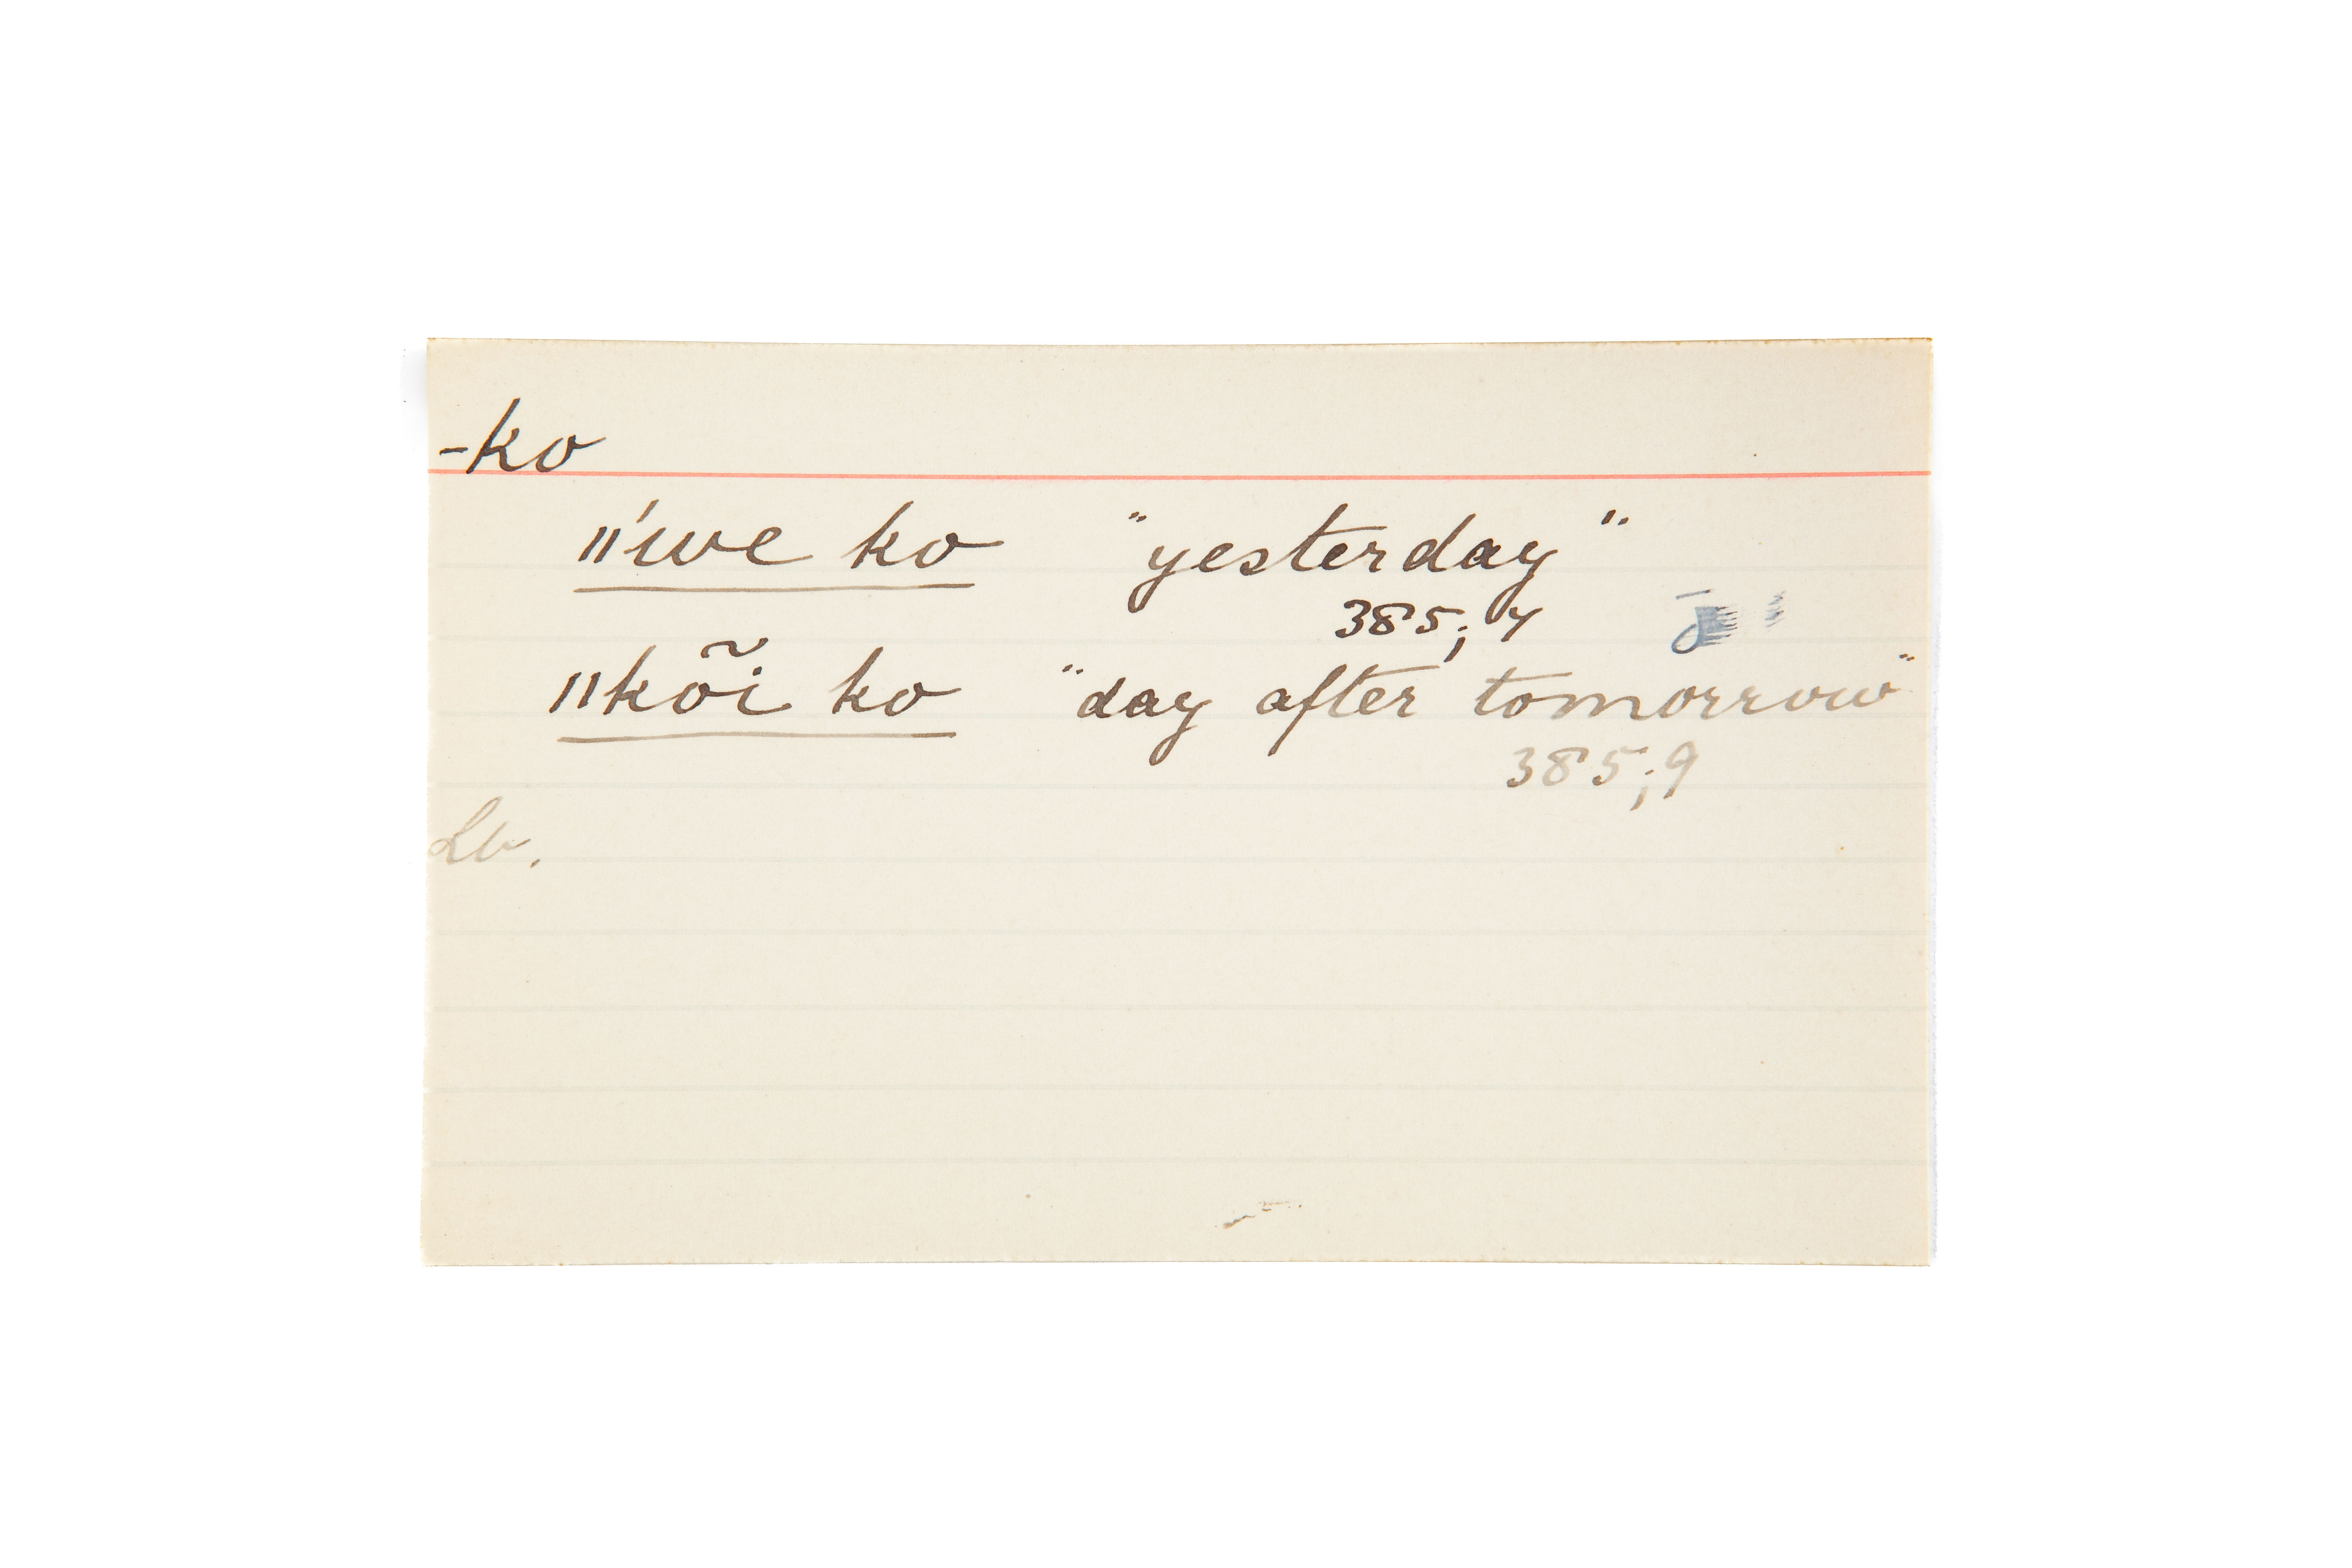 -ko
"'we ko "yesterday"
385; 7
"kõi ko "day after tomorrow"
385;9